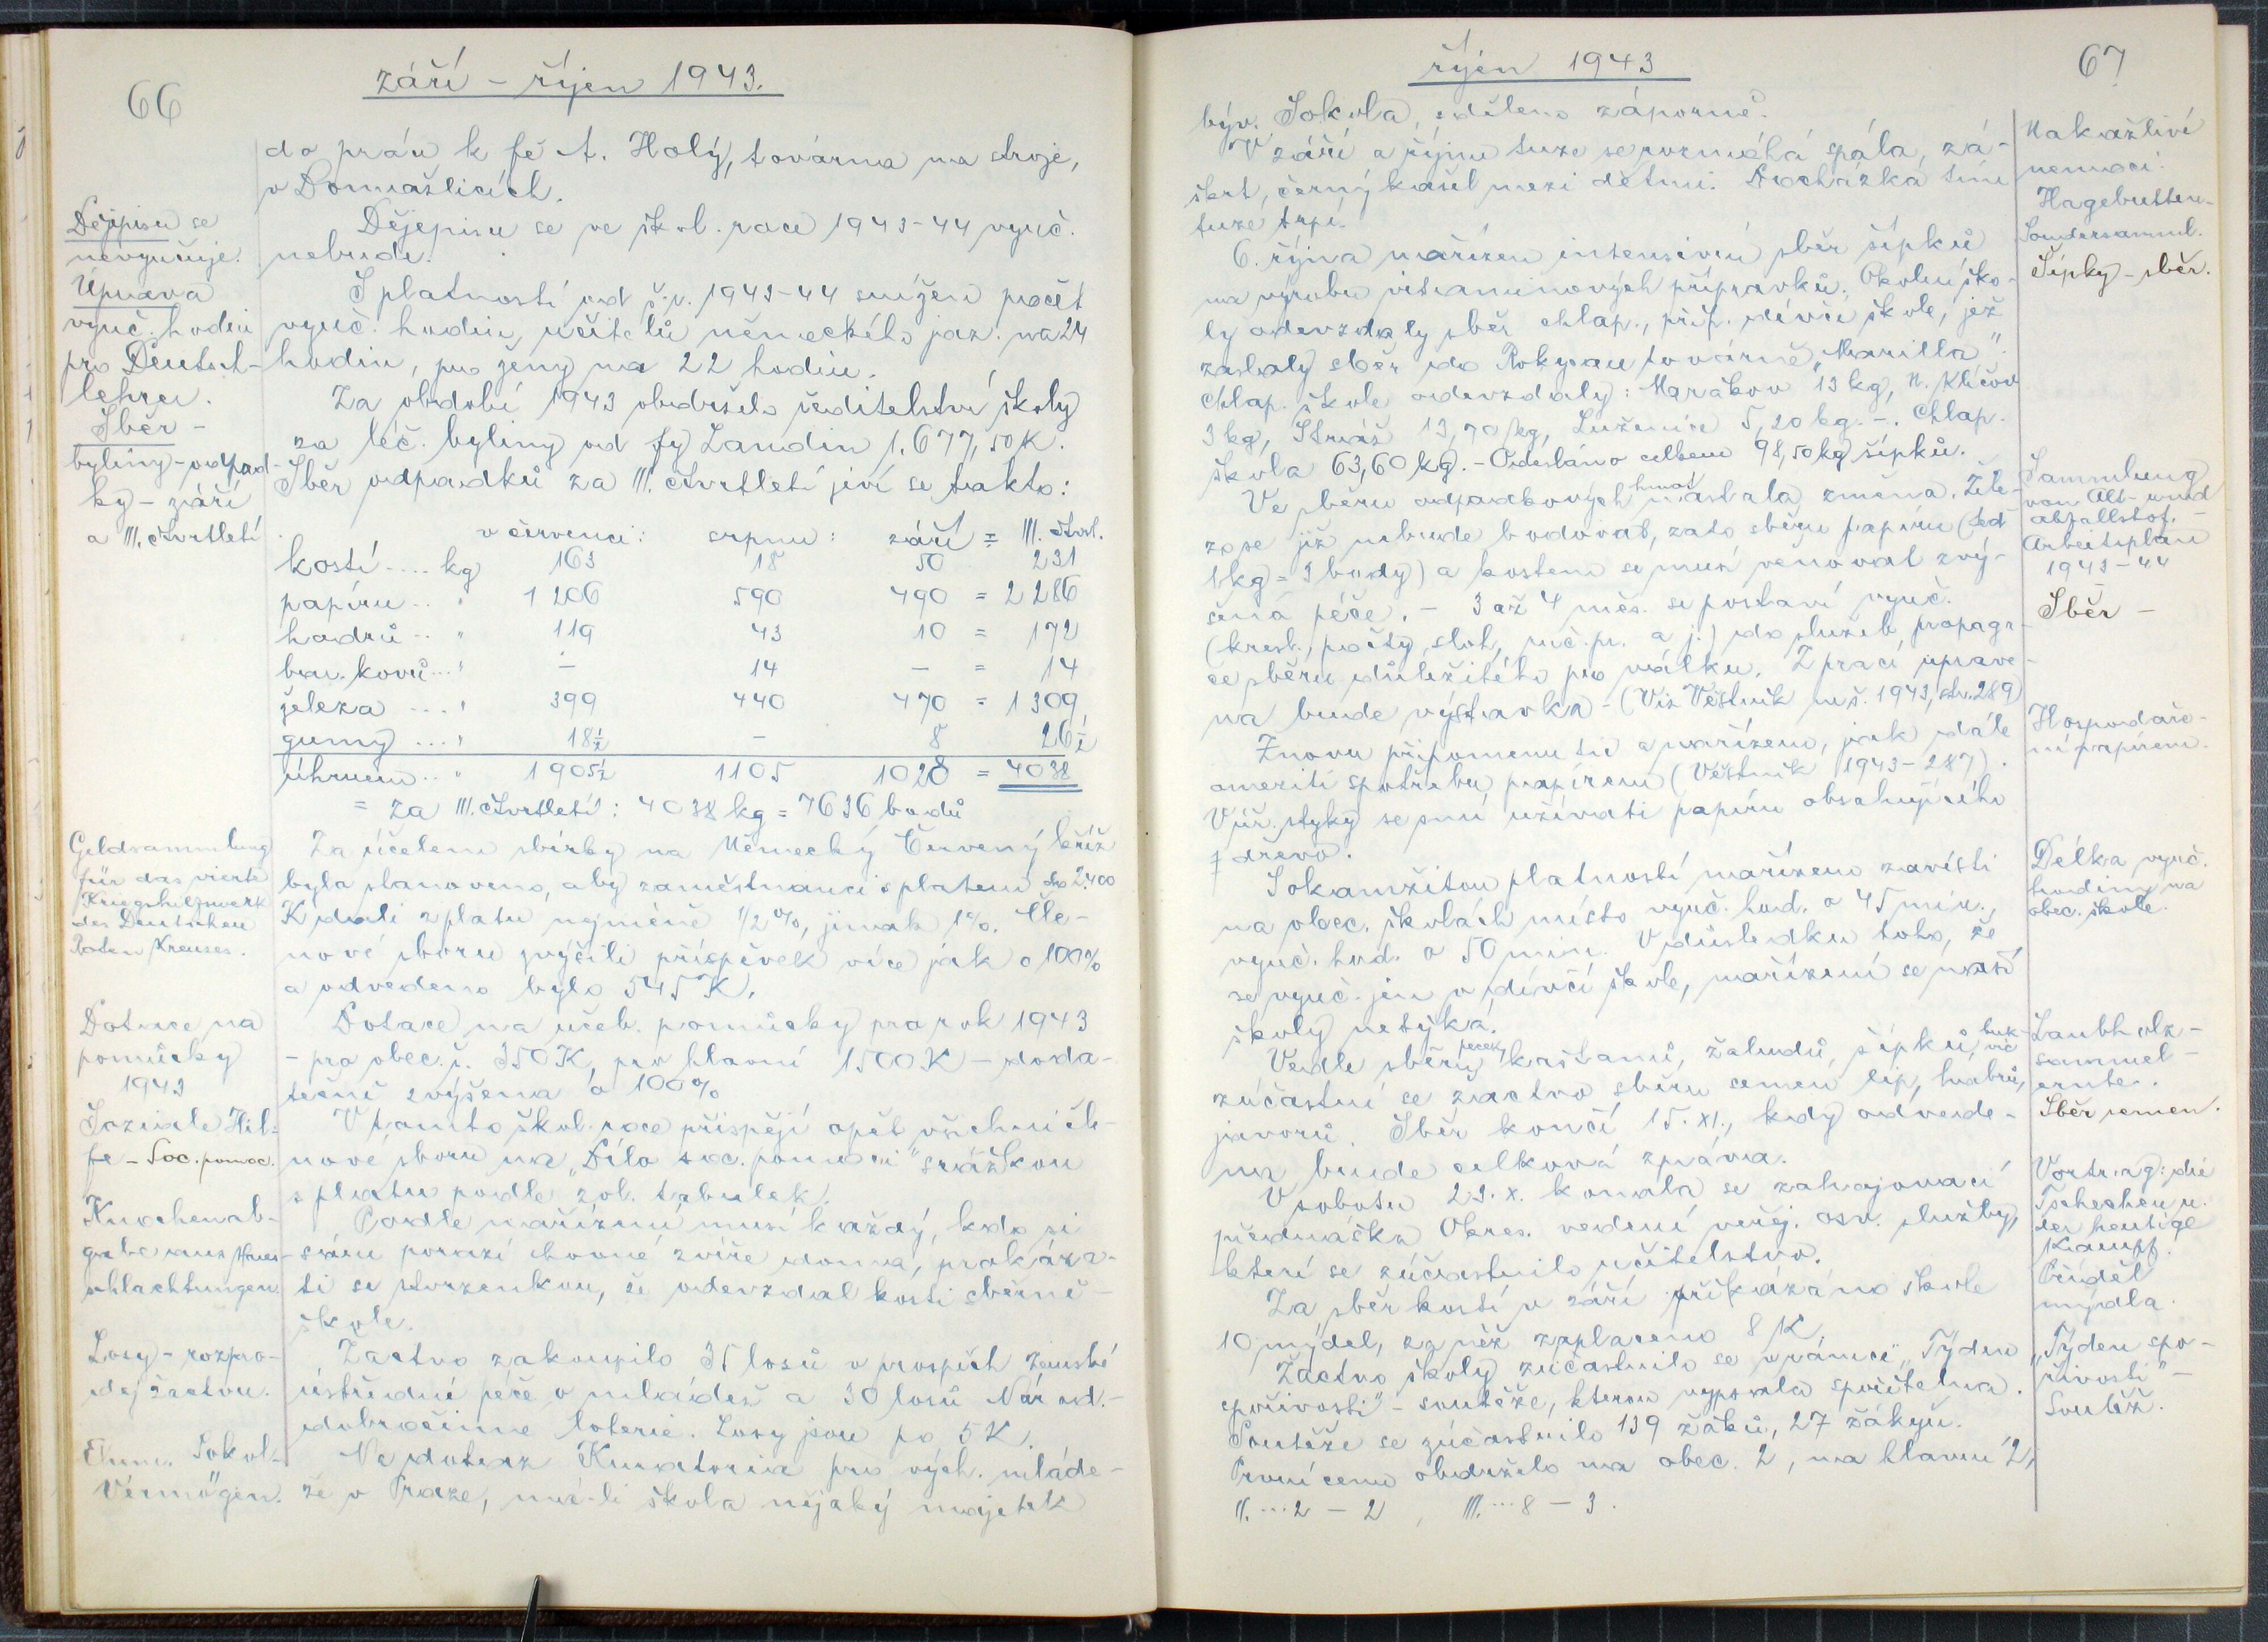 66
září - říjen 1943.
do prácu k fě A. Holý, továrna na stroje,
v Domažlicích.
Dějepisu se
nevyučuje.
Dějepisu se ve škol. roce 1943-44 vyuč.
nebude.
Úprava
vyuč. hodin
pro Deutsch-
lehrer.
S platností od š. r. 1943-44 snížen počet
vyuč. hodin, učitelů německého jaz. na 24
hodin, pro ženy na 22 hodin.
Sběr -
byliny - odpad-
ky - září
a III. čtvrtletí
Za období 1943 obdrželo ředitelství školy
za léč. byliny od fy Landin 1.677,50 K.
Sběr odpadků za III. čtvrtletí jeví se takto:
v červenci: srpnu: září = III. čtvrt.
kostí .... kg 163 18 50 231
papíru .. " 1206 590 490 = 2286
hadrů .. " 119 43 10 = 172
bar. kovů ... " - 14 - = 14
železa .... " 399 440 470 = 1309
gumy .... " 18½ - 8 26½
úhrnem .. " 1905½ 1105 1028 = 4038
= za III. čtvrtletí: 4038 kg = 7636 bodů
Geldsammlung
für das vierte
Kriegshilfswerk
des Deutschen
Roten Kreuzes.
Za účelem sbírky na Německý Červený kříž
bylo stanoveno, aby zaměstnanci s platem do 2.400
K dali z platu nejméně 1/2 %, jinak 1%. Čle-
nové sboru zvýšili příspěvek více jak o 100%
a odvedeno bylo 545 K.
Dotace na
pomůcky
1943
Dotace na učeb. pomůcky pro rok 1943
- pro obec. š. 350 K, pro hlavní 1500 K - doda-
tečně zvýšena o 100%
Soziale Hil-
fe - Soc. pomoc.
V tomto škol. roce přispějí opět všichni čle-
nové sboru na "Dílo soc. pomoci" srážkou
s platu podle zvl. tabulek.
Knochenab-
gabe aus Haus-
schlachtungen.
Podle nařízení musí každý, kdo si
sám porazí chovné zvíře doma, prokáza-
ti se stvrzenkou, že odevzdal kosti sběrně -
škole.
Losy - rozpro-
dej žactvu.
Žactvo zakoupilo 35 losů v prospěch Zemské
ústřední péče o mládež a 30 losů Národ.
dobročinné loterie. Losy jsou po 5 K.
Ehem. Sokol-
Vermögen.
Na dotaz Kuratoria pro vých. mláde-
že v Praze, má-li škola nějaký majetek
říjen 1943
67
býv. Sokola, sděleno záporně.
Nakažlivé
nemoci.
V září a říjnu tuze se rozmáhá spála, zá-
škrt, černý kašel mezi dětmi. Docházka tím
tuze trpí.
Hagebutten-
Sondersamml.
Šípky - sběr.
6. října nařízen intensivní sběr šípků
na výrobu vitaminových přípravků. Okolní ško-
ly odevzdaly sběr chlap., příp. dívčí škole, jež
zaslaly sběr do Rokycan továrně "Marilla".
Chlap. škole odevzdaly: Mrákov 13 kg, N. Klíčov
3 kg, Stráž 13,70 kg, Luženice 5,20 kg. -. Chlap.
škola 63,60 kg. - Odesláno celkem 98,50 kg šípků.
Sammlung
von Alt- und
abfallstof. -
Arbeitsplan
1943-44
Sběr -
Ve sběru odpadkových hmot nastala změna. Žele-
zo se již nebude bodovat, zato sběru papíru (teď
1 kg = 3 body) a kostem se musí věnovat zvý-
šená péče. - 3 až 4 měs. se postaví vyuč.
(kresl., počty, sloh, ruč. pr. a j.) do služeb propaga-
ce sběru důležitého pro válku. Z prací uprave-
na bude výstavka - (Viz Věstník m. š. 1943, str. 289)
Hospodaře-
ní papírem.
Znovu připomenuto a nařízeno, jak dále
omeziti spotřebu papírem (Věstník 1943-287).
V úř. styky se smí užívati papíru obsahujícího
dřevo.
Délka vyuč.
hodiny na
obec. škole.
S okamžitou platností nařízeno zavésti
na obec. školách místo vyuč. hod. o 45 min.,
vyuč. hod. o 50 min. V důsledku toho, že
se vyuč. jen v dívčí škole, nařízení se naší
školy netýká.
Laubholz-
sammel-
ernte.
Sběr semen.
Vedle sběru pecek, kaštanů, žaludů, šípků, buk-
vic
zúčastní se žactvo sběru semen lip, habrů,
javorů. Sběr končí 15. XI., kdy odvede-
na bude celková zpráva.
Vortrag: die
Tschechen u.
der heutige
Kampf.
V sobotu 23. X. konala se zahajovací
přednáška Okres. vedení veřej. osv. služby,
které se zúčastnilo učitelstvo.
Příděl
mýdla.
Za sběr kostí v září přikázáno škole
10 mýdel, za něž zaplaceno 8 K.
"Týden spo-
řivosti" -
Soutěž.
Žactvo školy zúčastnilo se v rámci "Týdne
spořivosti" - soutěže, kterou vypsala spořitelna.
Soutěže se zúčastnilo 139 žáků, 27 žákyň.
První cenu obdrželo na obec. 2, na hlavní 2,
II. ... 2 - 2, III. ... 8 - 3.